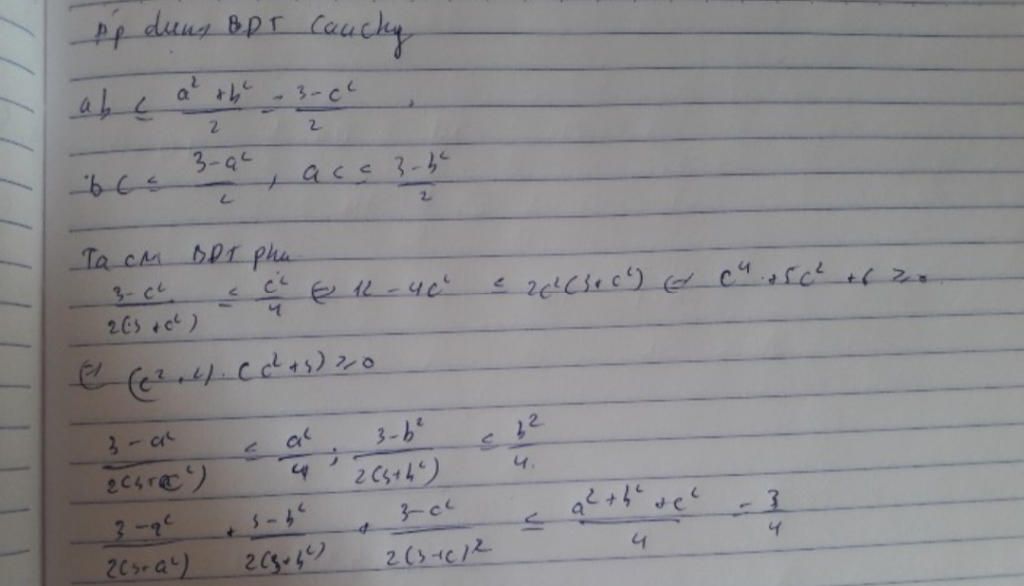 Áp dụng BDT Cauchy
ab ≤ (a² + b²)/2 = (3-c²)/2 ,
bc ≤ (3-a²)/2 , ac ≤ (3-b²)/2
Ta cm BDT phụ
(3-c²)/(2(3+c²)) ≤ c²/4 ⇔ 12 - 4c² ≤ 2c²(3+c²) ⇔ c⁴ + 5c² + 6 ≥ 0
⇔ (c²+2).(c²+3) ≥ 0
(3-a²)/(2(3+a²)) ≤ a²/4 ; (3-b²)/(2(3+b²)) ≤ b²/4.
(3-a²)/(2(3+a²)) + (3-b²)/(2(3+b²)) + (3-c²)/(2(3+c)²) ≤ (a²+b²+c²)/4 = 3/4